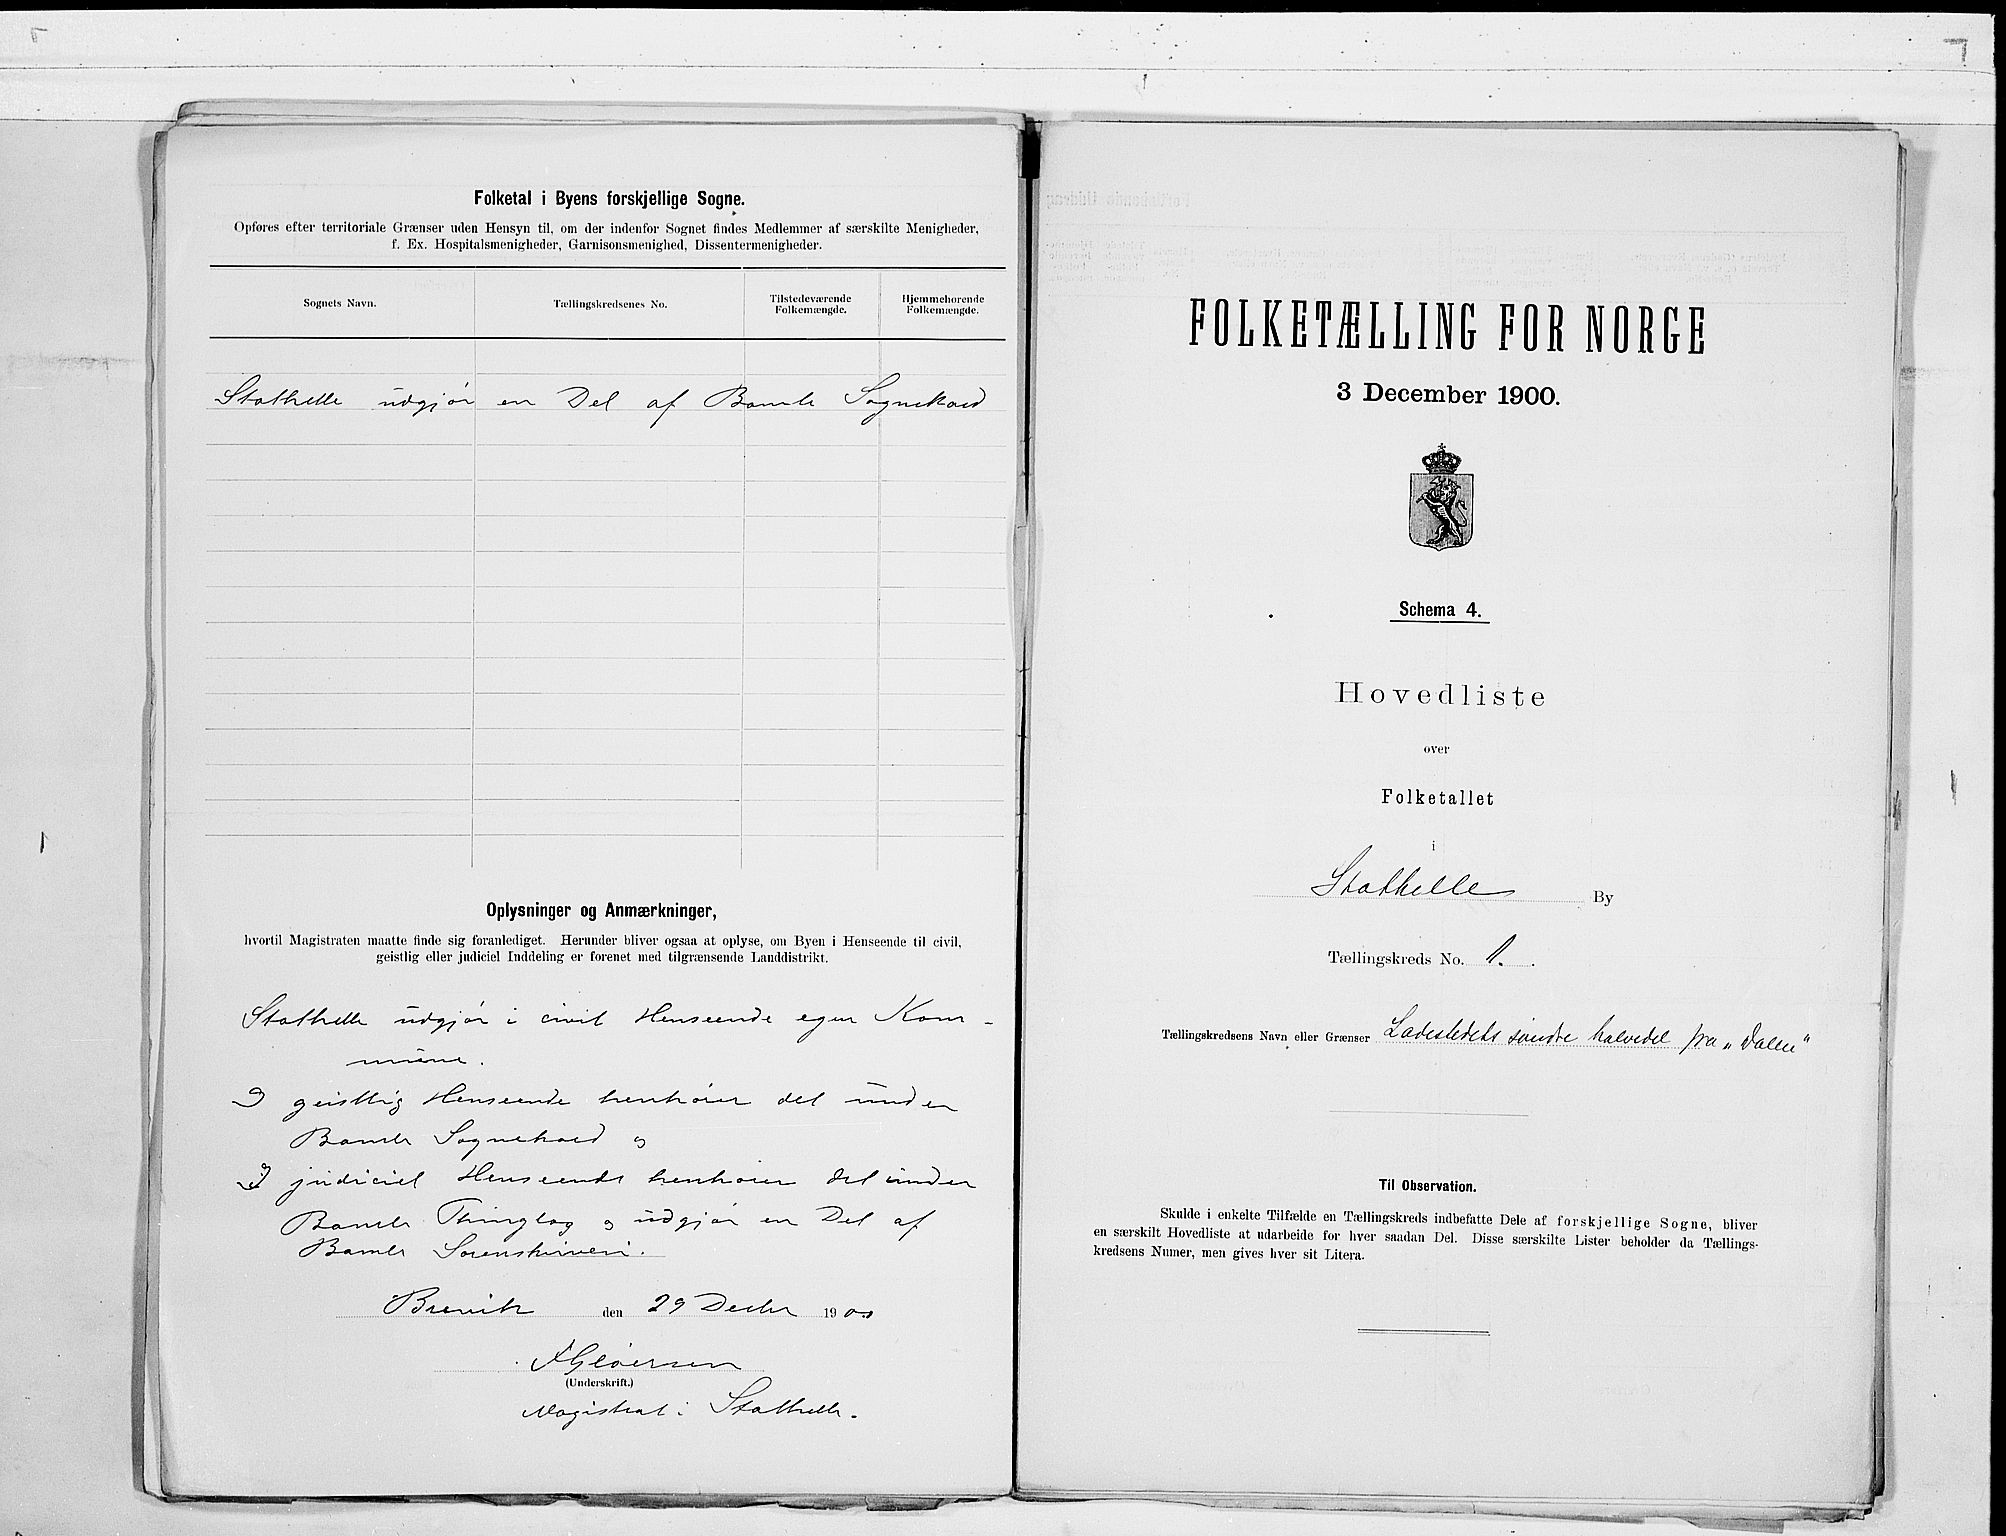 Folketal i Byens forskjellige Sogne.
Opføres efter territoriale Grænser uden Hensyn til, om der indenfor Sognet findes Medlemmer af særskilte Menigheder,
f. Ex. Hospitalsmenigheder, Garnisonsmenighed, Dissentermenigheder.
Sognets Navn.
Tællingskredsenes No.
Tilstedeværende
Folkemængde.
Hjemmehørende
Folkemængde.
Stathelle udgjør en Del af Bamle Sognekald
Oplysninger og Anmærkninger,
hvortil Magistraten maatte finde sig foranlediget. Herunder bliver ogsaa at oplyse, om Byen i Henseende til civil,
geistlig eller judiciel Inddeling er forenet med tilgrænsende Landdistrikt.
Stathelle udgjør i civil Henseende egen Kom-
mune.
I geistlig Henseende henhører det under
Bamle Sognekald og
I judiciel Henseende henhører det under
Bamle Thinglag og udgjør en Del af
Bamle Sorenskriveri.
Brevik den 29 Decbr 1900
Gløersen
(Underskrift.)
Magistrat i Stathelle.
FOLKETÆLLING FOR NORGE
3 December 1900.
Schema 4.
Hovedliste
over
Folketallet
i
Stathelle By
Tællingskreds No. 1.
Tællingskredsens Navn eller Grænser Ladestedets søndre halvdel fra "Dalen"
Til Observation.
Skulde i enkelte Tilfælde en Tællingskreds indbefatte Dele af forskjellige Sogne, bliver
en særskilt Hovedliste at udarbeide for hver saadan Del. Disse særskilte Lister beholder da Tællings-
kredsens Numer, men gives hver sit Litera.